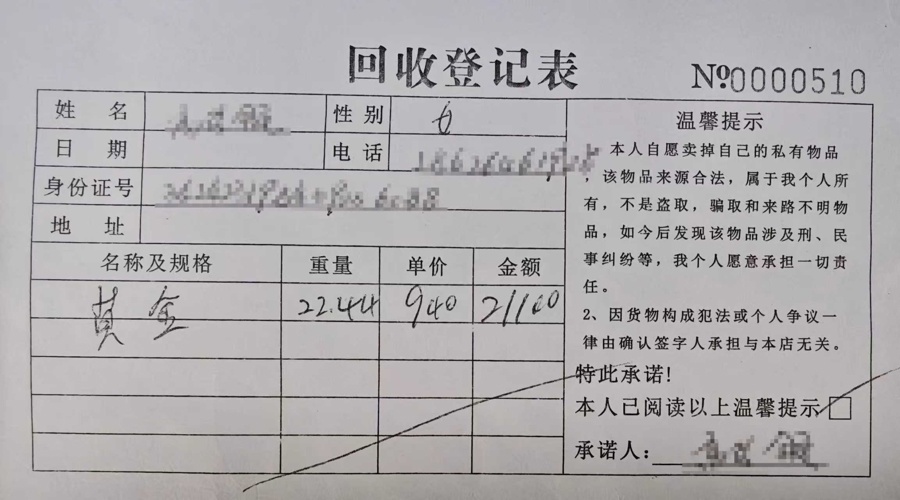 回收登记表
No0000510
姓 名
性别
女
日 期
电话
身份证号
地 址
名称及规格 重量 单价 金额
黄金 22.44 940 21100
温馨提示
本人自愿卖掉自己的私有物品
，该物品来源合法，属于我个人所
有，不是盗取，骗取和来路不明物
品，如今后发现该物品涉及刑、民
事纠纷等，我个人愿意承担一切责
任。
2、因货物构成犯法或个人争议一
律由确认签字人承担与本店无关。
特此承诺!
本人已阅读以上温馨提示
承诺人：